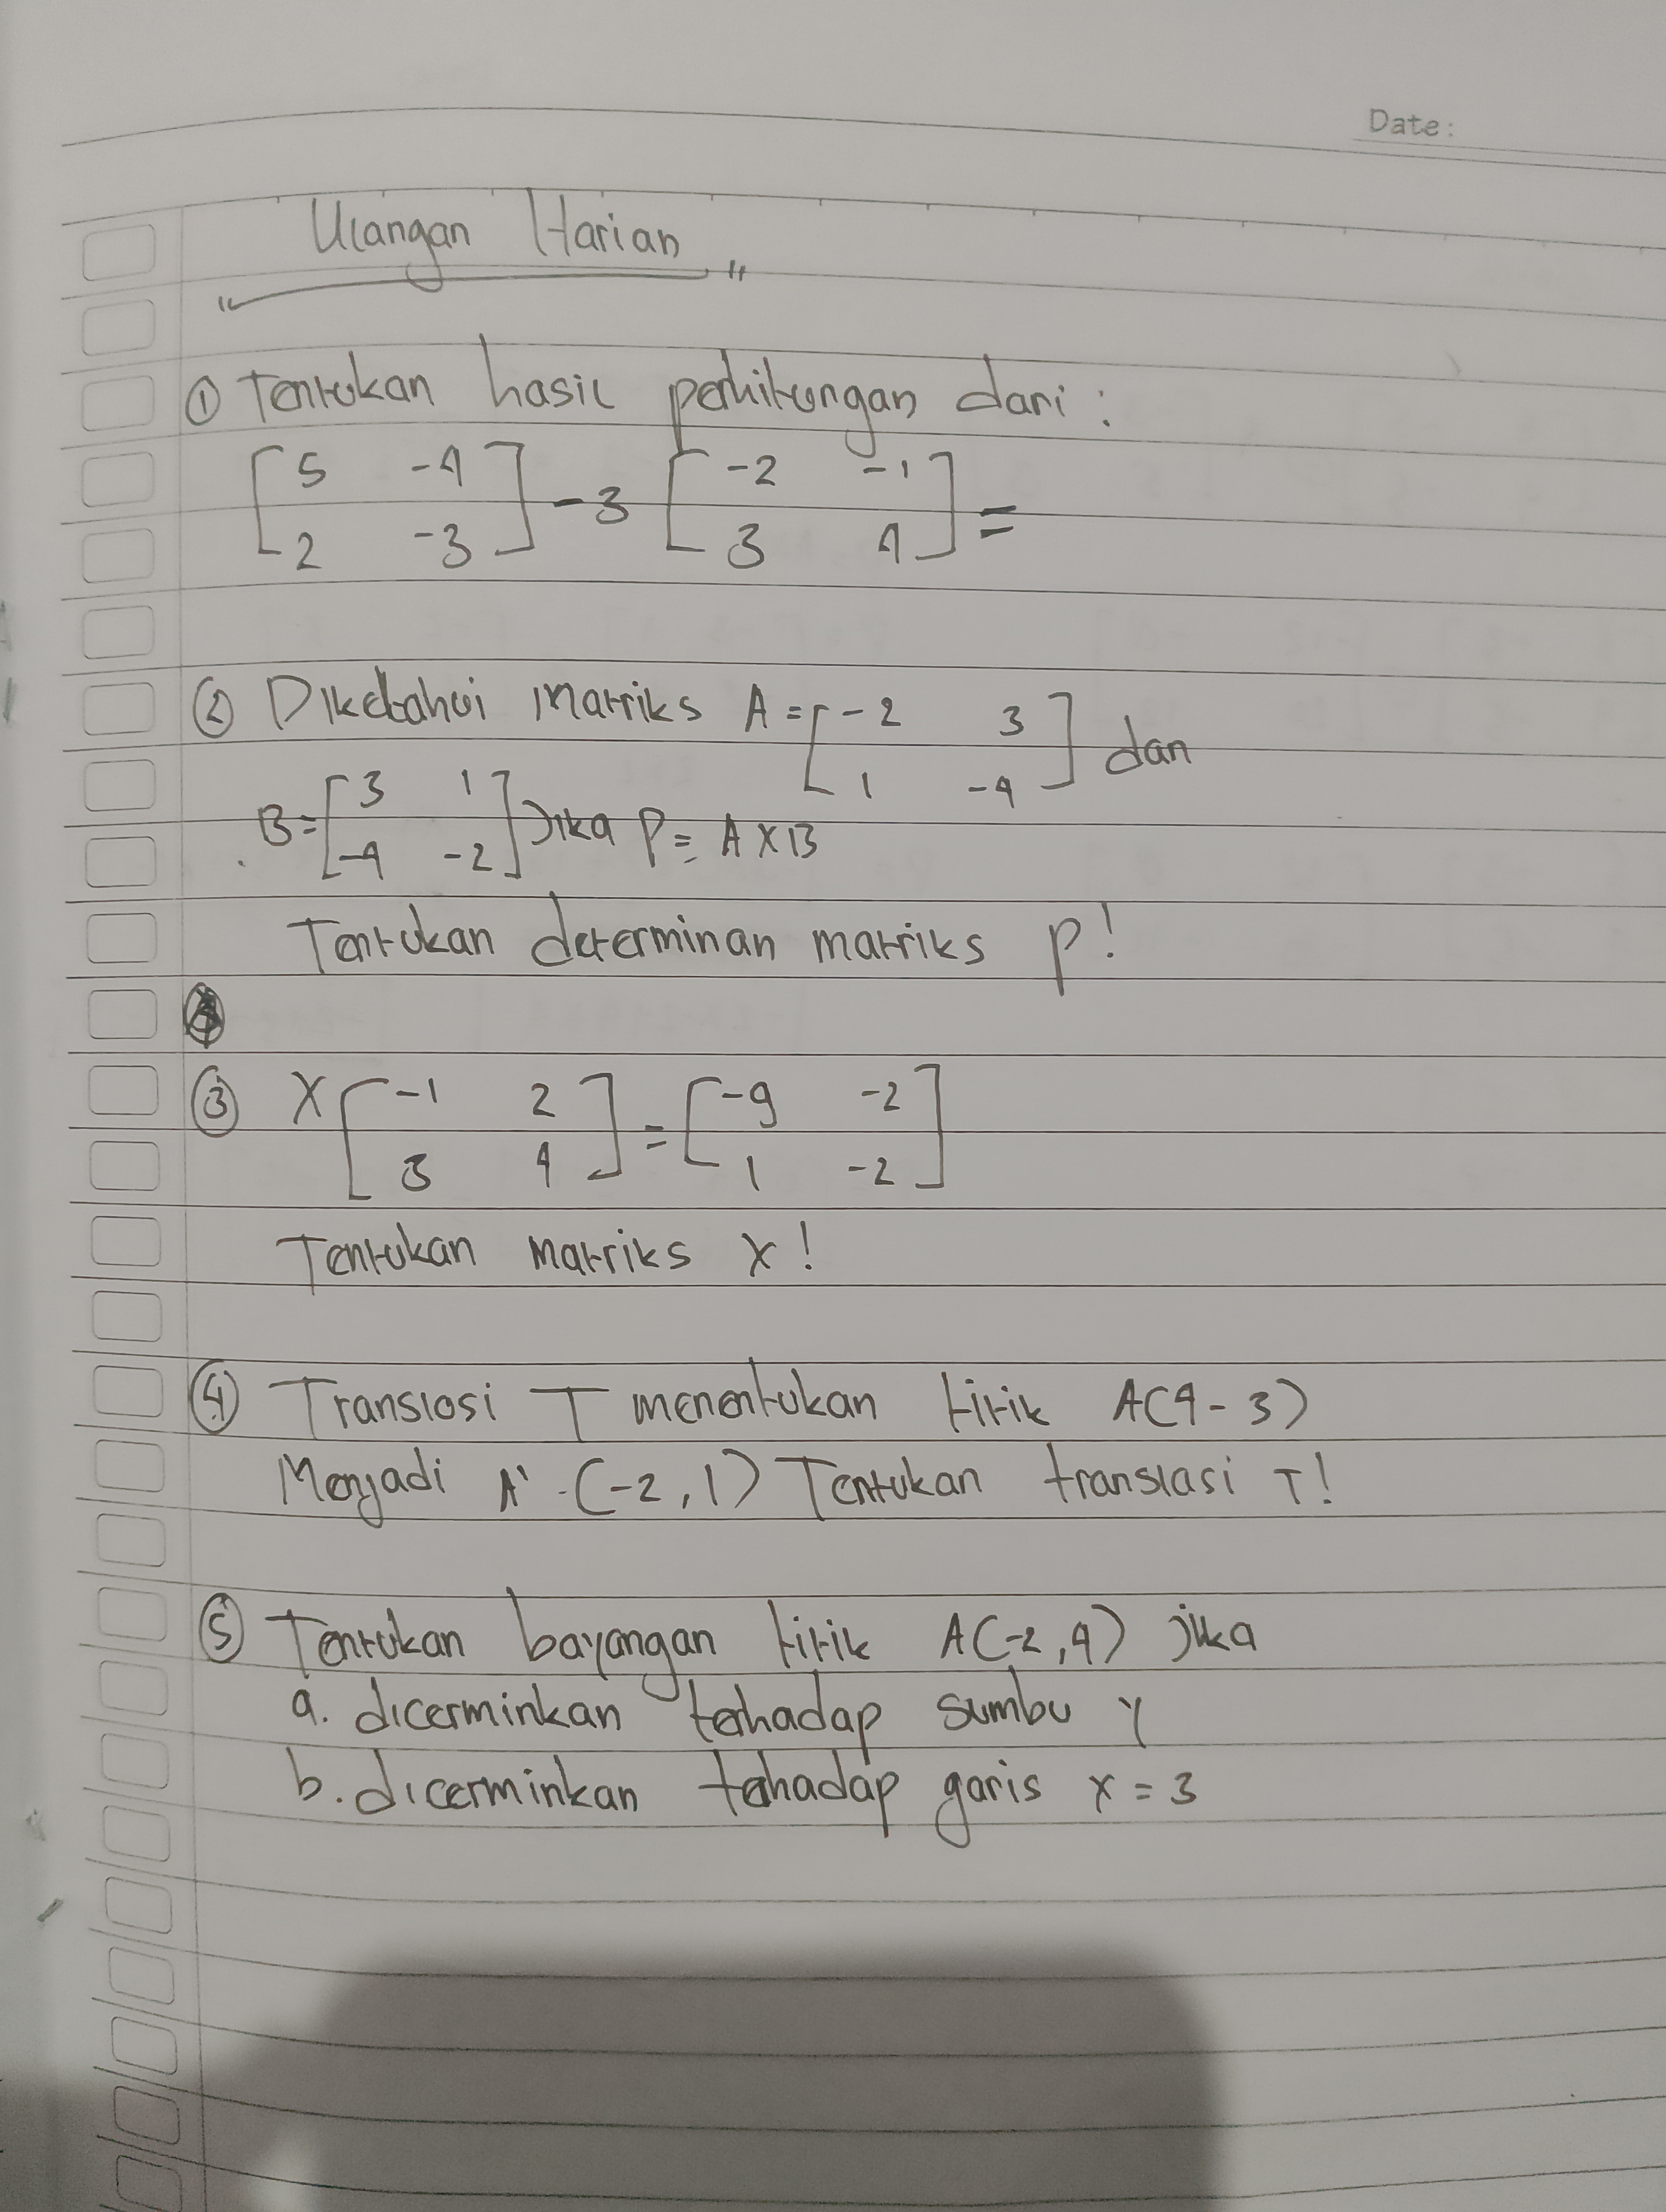 Date:
Ulangan Harian
① Tentukan hasil perhitungan dari :
[5 -4] - 3 [-2 -1] =
[2 -3] [3 4]
② Diketahui matriks A = [-2 3] dan
[1 -4]
B = [3 1] Jika P = A x B
[-4 -2]
Tentukan determinan matriks P!
③ X [-1 2] = [-9 -2]
[3 4] [1 -2]
Tentukan matriks X!
④ Translasi T menentukan titik A(4 - 3)
Menjadi A' - (-2, 1) Tentukan translasi T!
⑤ Tentukan bayangan titik A(-2, 4) jika
a. dicerminkan terhadap sumbu Y
b. dicerminkan tehadap garis x = 3